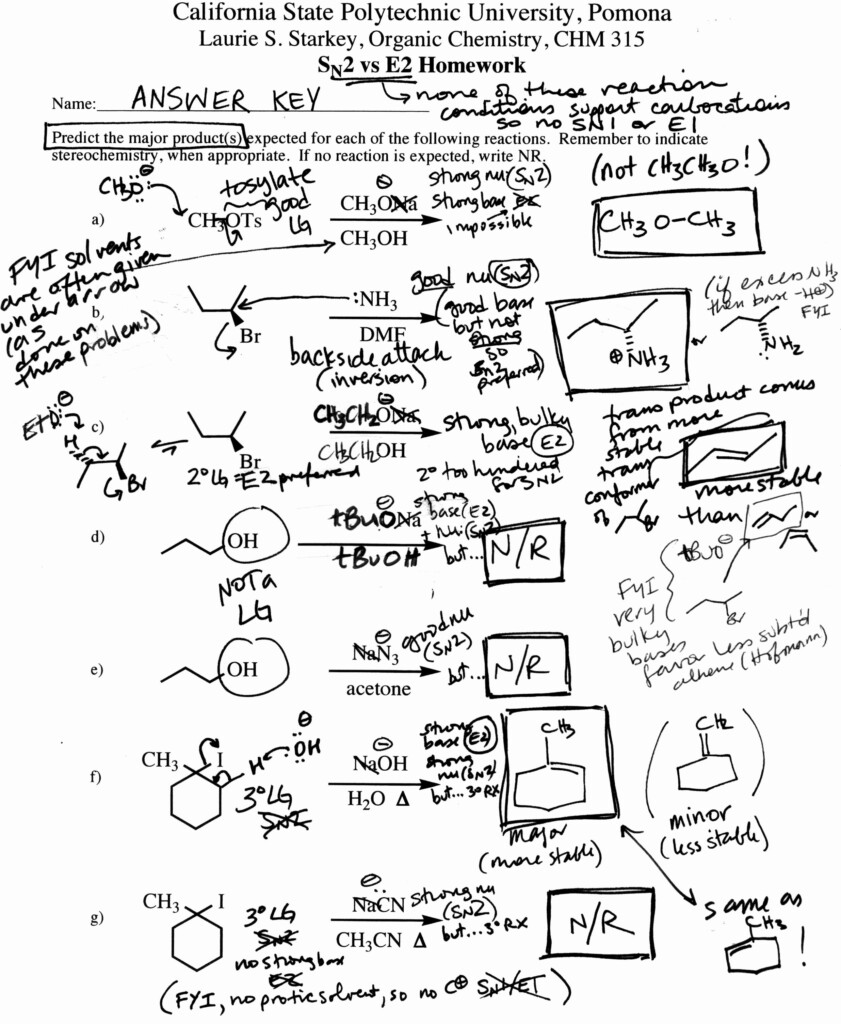 California State Polytechnic University, Pomona
Laurie S. Starkey, Organic Chemistry, CHM 315
SN2 vs E2 Homework
none of these reaction
conditions support carbocations
so no SN1 or E1
Name: ANSWER KEY
Predict the major product(s) expected for each of the following reactions. Remember to indicate
stereochemistry, when appropriate. If no reaction is expected, write NR.
a)
CH3O:⊖
tosylate
good
LG
CH3OTs
CH3O⊖Na
CH3OH
strong nu: (SN2)
strong base E2
impossible
(not CH3CH3O!)
CH3O-CH3
FYI solvents
are often given
under arrow
(as
done on
these problems)
b)
Br
:NH3
DMF
backside attack
(inversion)
good nu (SN2)
good base
but not
strong
so
SN2
preferred)
⊕NH3
or
NH2
(if excess NH3
then base -H⊕)
FYI
c)
EtO:⊖
H
Br
Br
2° LG = E2 preferred
CH3CH2O⊖Na
CH3CH2OH
strong, bulky
base E2
2° too hindered
for SN2
trans product comes
from more
stable
trans
conformer
of
Br
more stable
than
or
d)
OH
NOT a
LG
tBuO⊖Na
tBuOH
strong
base (E2)
+ nu: (SN2)
but...
N/R
tBuO⊖
Br
FYI
very
bulky
bases
favor less subt'd
alkene (Hofmann)
e)
OH
NaN3⊖
acetone
good nu
(SN2)
but...
N/R
f)
CH3
I
H
⊖
:OH
3° LG
SN2
NaOH⊖
H2O Δ
strong
base (E2)
strong
nu (SN2)
but... 3° RX
CH3
major
(more stable)
CH2
minor
(less stable)
same as
CH3
!
g)
CH3
I
3° LG
SN2
no strong base
E2
NaCN⊖
CH3CN Δ
strong nu
(SN2)
but...3° RX
N/R
(FYI, no protic solvent, so no C⊕ SN1/E1)